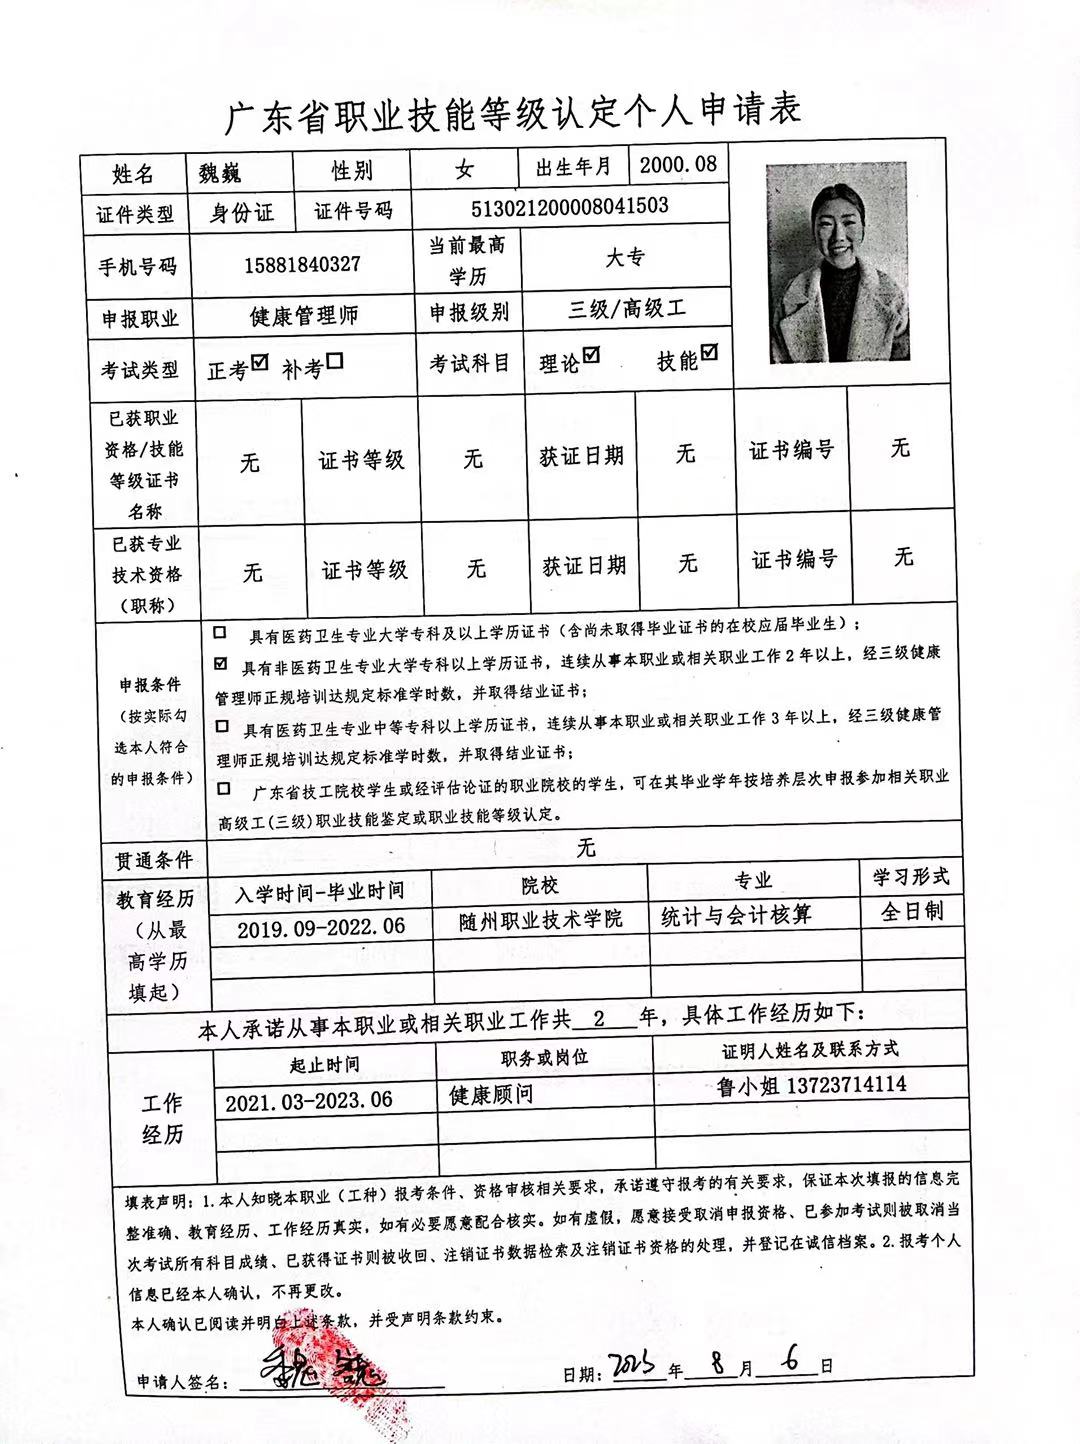 广东省职业技能等级认定个人申请表
姓名 魏巍 性别 女 出生年月 2000.08
证件类型 身份证 证件号码 513021200008041503
手机号码 15881840327 当前最高学历 大专
申报职业 健康管理师 申报级别 三级/高级工
考试类型 正考☑ 补考☐ 考试科目 理论☑ 技能☑
已获职业
资格/技能
等级证书
名称
无 证书等级 无 获证日期 无 证书编号 无
已获专业
技术资格
（职称）
无 证书等级 无 获证日期 无 证书编号 无
申报条件
（按实际勾
选本人符合
的申报条件）
☐ 具有医药卫生专业大学专科及以上学历证书（含尚未取得毕业证书的在校应届毕业生）；
☑ 具有非医药卫生专业大学专科以上学历证书，连续从事本职业或相关职业工作2年以上，经三级健康
管理师正规培训达规定标准学时数，并取得结业证书；
☐ 具有医药卫生专业中等专科以上学历证书，连续从事本职业或相关职业工作3年以上，经三级健康管
理师正规培训达规定标准学时数，并取得结业证书；
☐ 广东省技工院校学生或经评估论证的职业院校的学生，可在其毕业学年按培养层次申报参加相关职业
高级工(三级)职业技能鉴定或职业技能等级认定。
贯通条件 无
教育经历
（从最
高学历
填起）
入学时间-毕业时间 院校 专业 学习形式
2019.09-2022.06 随州职业技术学院 统计与会计核算 全日制
本人承诺从事本职业或相关职业工作共 2 年，具体工作经历如下：
工作
经历
起止时间 职务或岗位 证明人姓名及联系方式
2021.03-2023.06 健康顾问 鲁小姐 13723714114
填表声明：1.本人知晓本职业（工种）报考条件、资格审核相关要求，承诺遵守报考的有关要求，保证本次填报的信息完
整准确、教育经历、工作经历真实，如有必要愿意配合核实。如有虚假，愿意接受取消申报资格、已参加考试则被取消当
次考试所有科目成绩、已获得证书则被收回、注销证书数据检索及注销证书资格的处理，并登记在诚信档案。2.报考个人
信息已经本人确认，不再更改。
本人确认已阅读并明白上述条款，并受声明条款约束。
申请人签名： 魏巍 日期：2023年 8 月 6 日